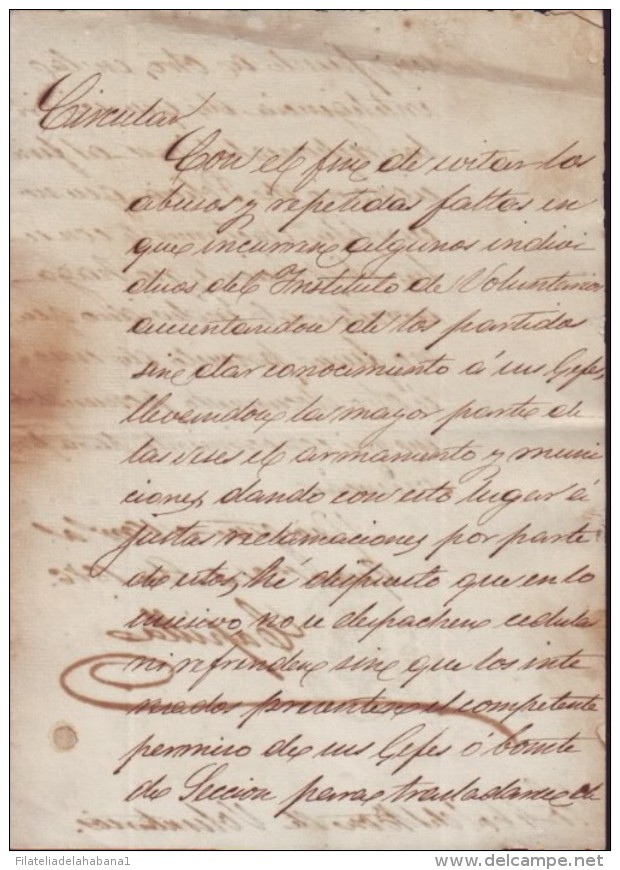 Circular
Con el fin de evitar los
abusos y repetidas faltas en
que incurren algunos indivi
duos del Instituto de Voluntarios
ausentandose de los partidos
sin dar conocimiento á sus Gefes,
llevandose la mayor parte de
las veces el armamento y muni
ciones, dando con esto lugar á
justas reclamaciones por parte
de estos, hé dispuesto que en lo
sucesivo no se despachen cedula
ni refrenden sin que los inte
resados presenten el competente
permiso de sus Gefes ó
de Seccion para trasladarse de
Filateliadelahabana1
delcampe.net